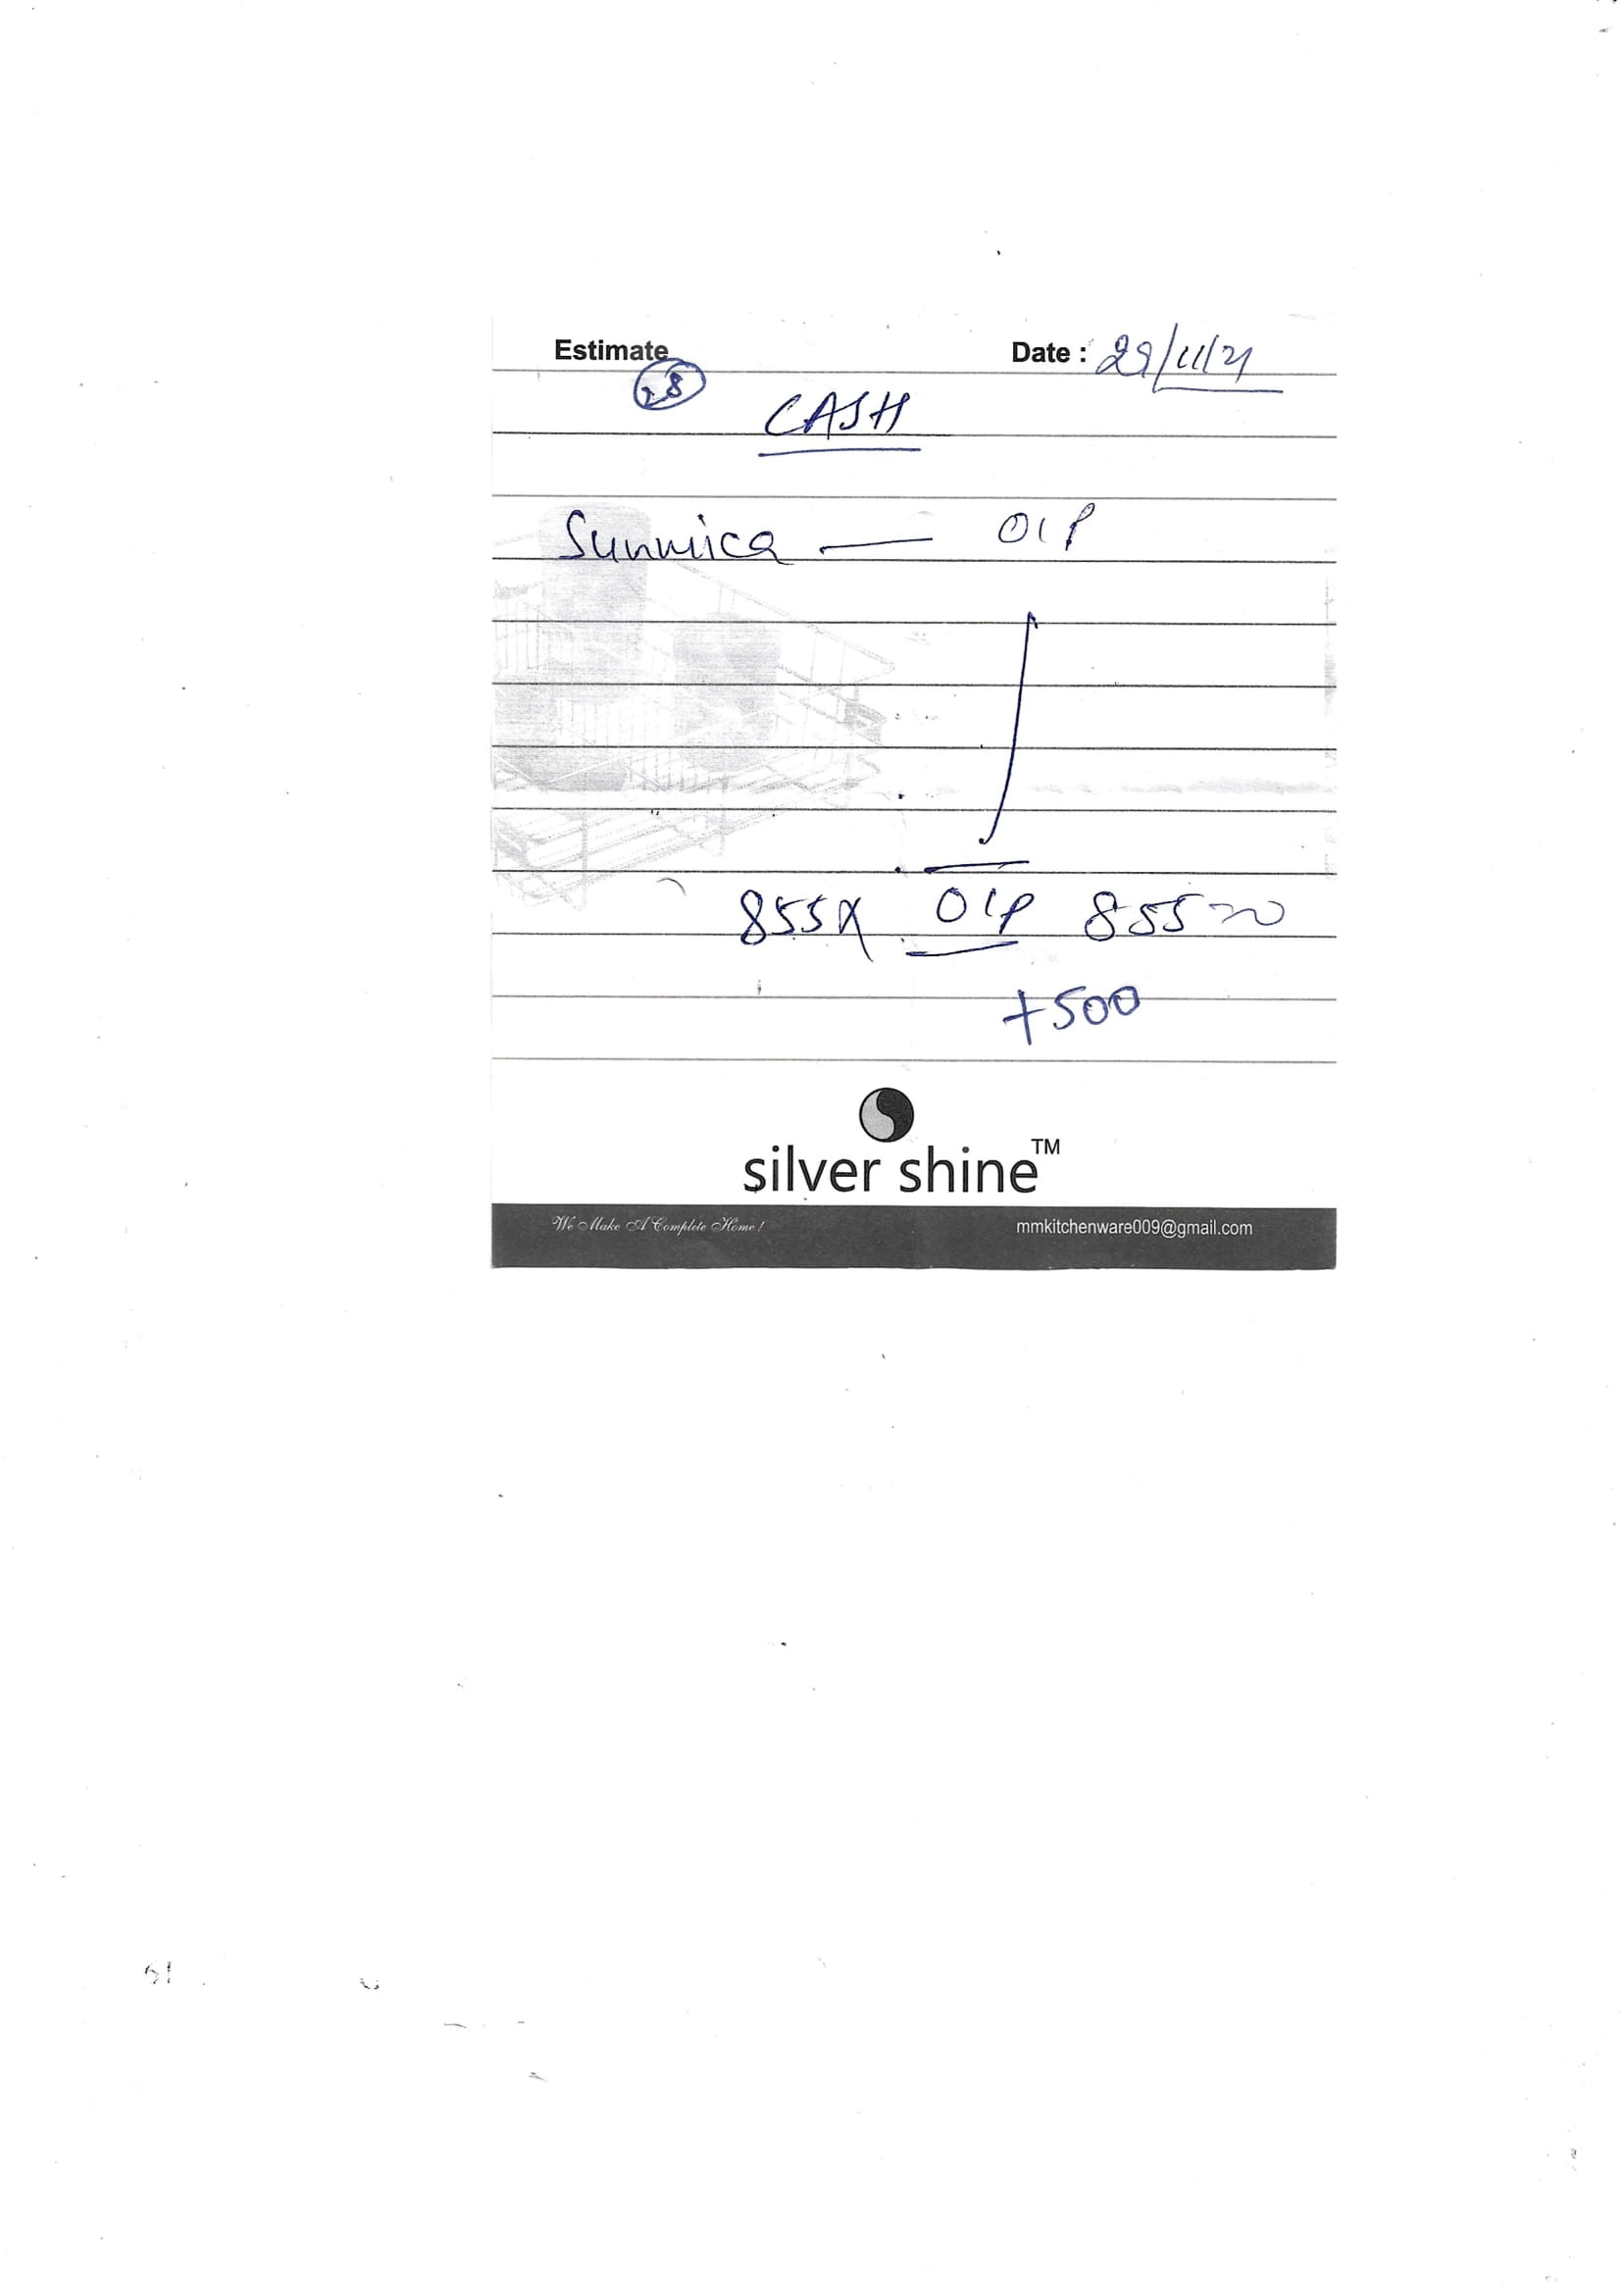 Estimate Date : 29/11/21
28
CASH
Sunmica — 01P
855X 01P 855=00
+500
silver shine™
We Make A Complete Home! mmkitchenware009@gmail.com